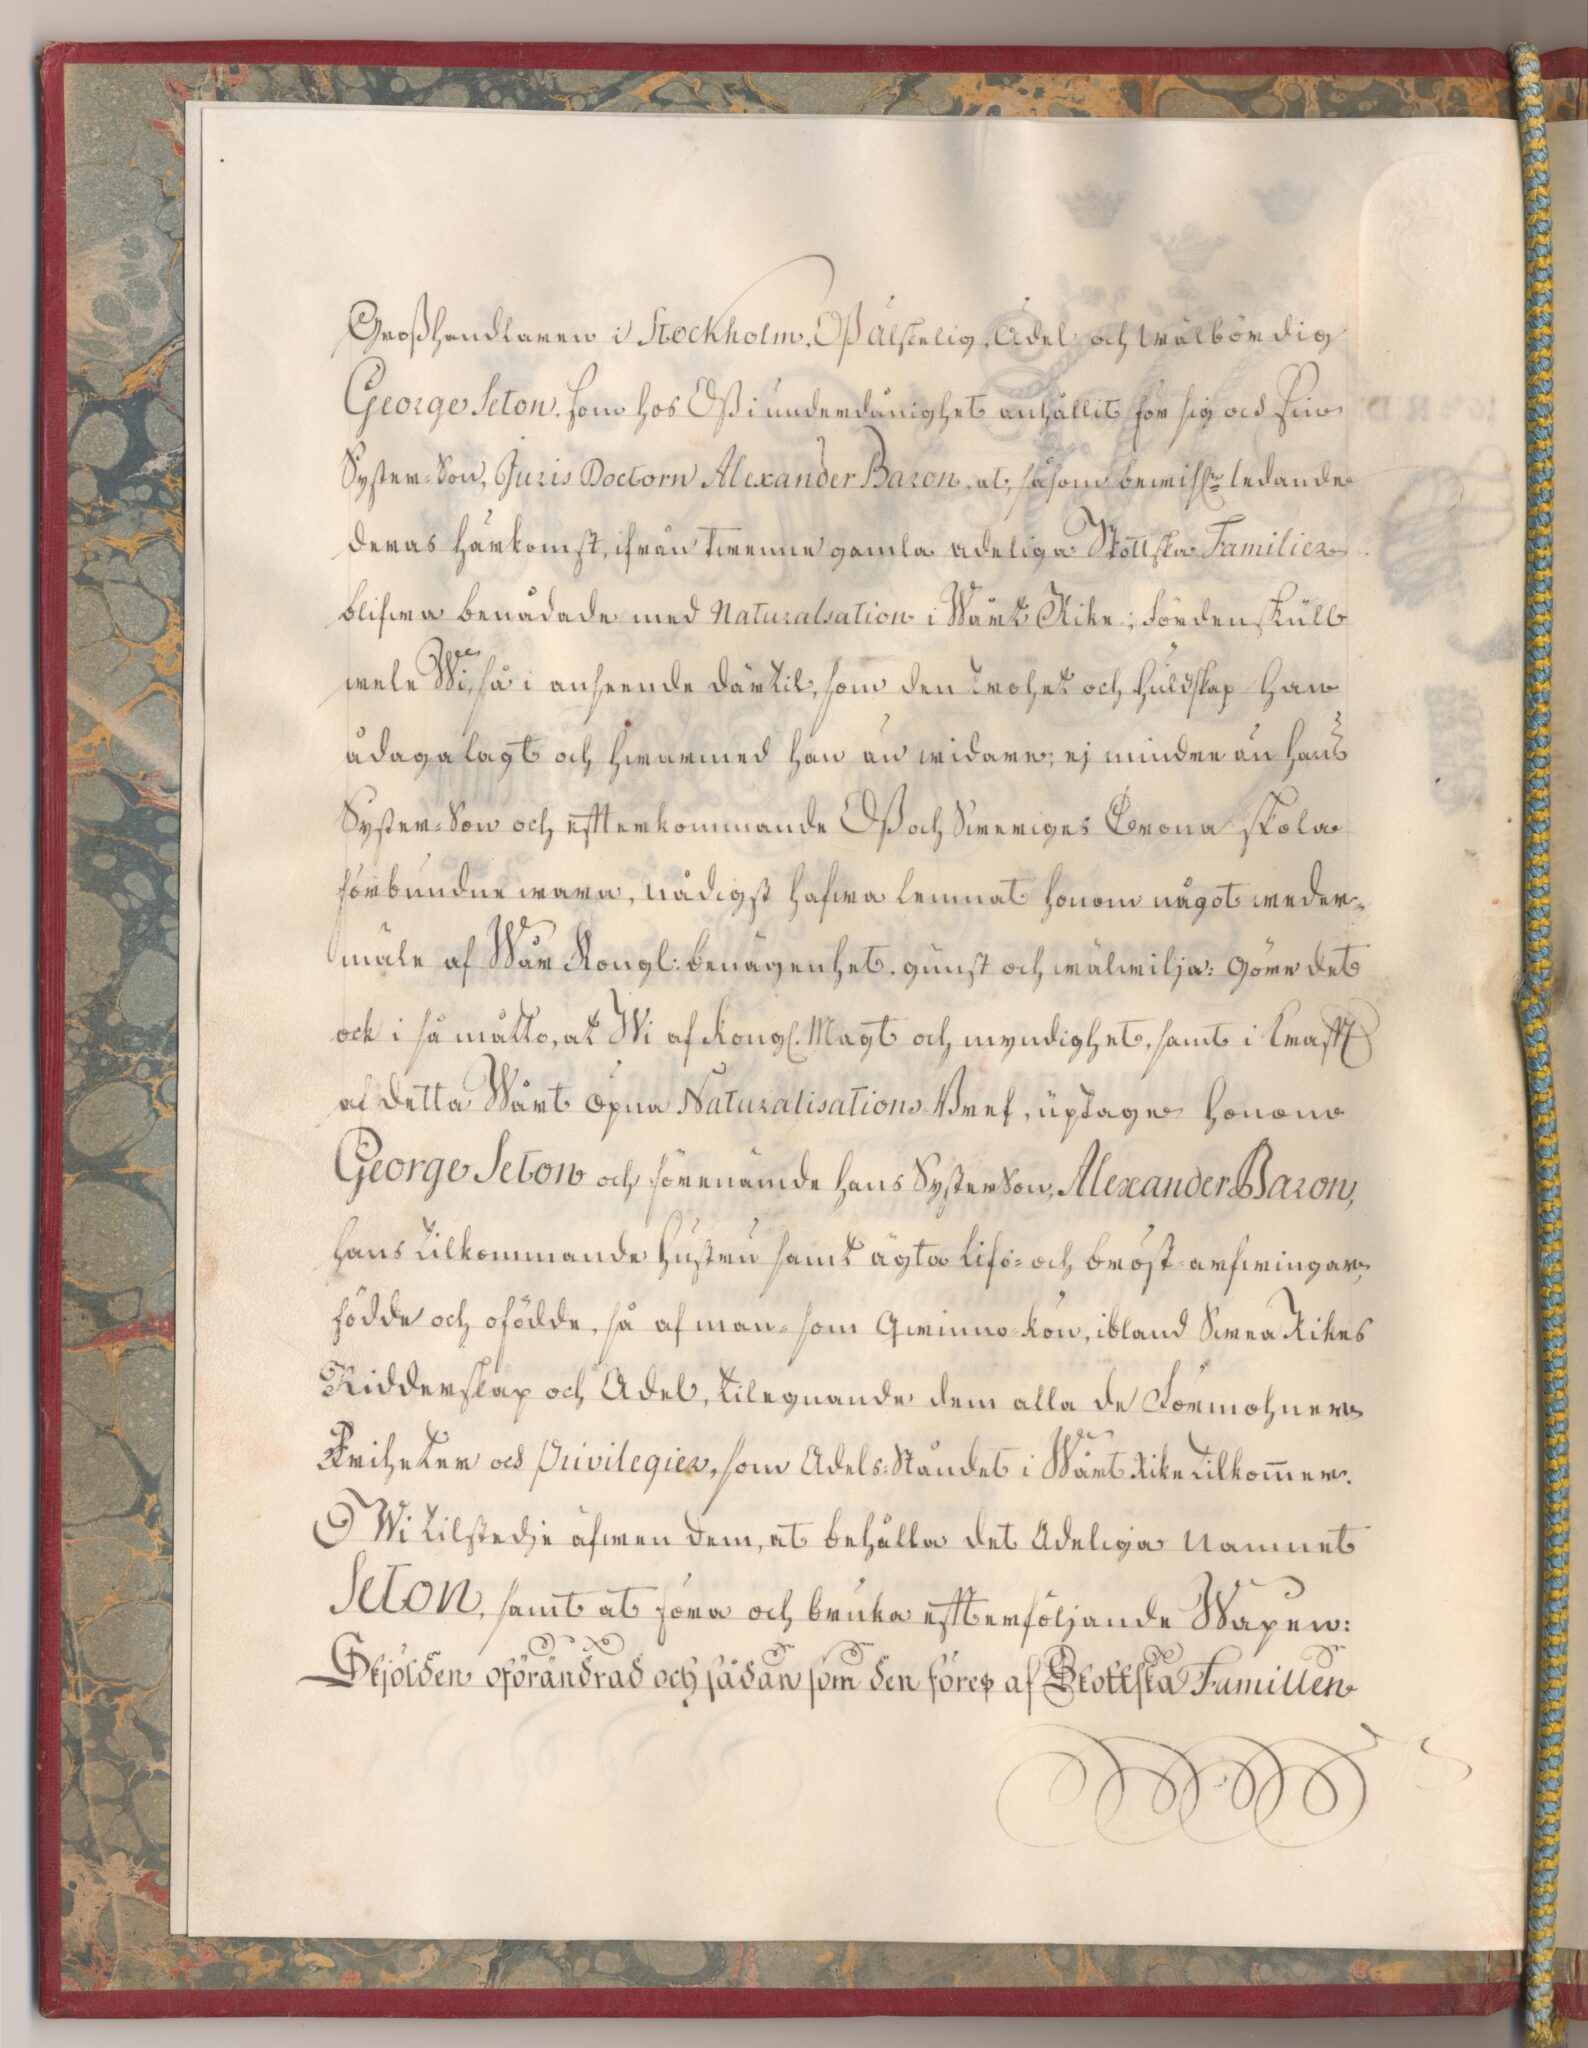 Großhandlaren i Stockholm, Oß älskelig, Adel och wälbördig
George Seton, som hos Oß i underdånighet anhållit för sig och Sin
Syster-Son, Juris Doctorn Alexander Baron, at, såsom bewisl:n ledande
deras härkomst, ifrån twenne gamla adeliga Skottska Familier
blifwa benådade med Naturalsation i Wårt Rike; Fördenskull
wele Wi, så i anseende därtil, som den trohet och huldskap han
ådagalagt och hwarmed han än widare, ej mindre än hans
Syster-Son och efterkommande Oß och Sweriges Crona skola
förbundne wara, nådigst hafwa lemnat honom något weder-
mäle af Wår Kongl: benägenhet, gunst och wälwilja: Göre det
ock i så måtto, at Wi af Kongl. Magt och myndighet, samt i kraft
af detta Wårt öpna Naturalisations Bref, uptage honom
George Seton och förenämde hans SysterSon, Alexander Baron,
hans tilkommande hustru samt ägta lifs- och bröst-arfwingar,
födde och ofödde, så af man- som Qwinno-kön, ibland Swea Rikes
Ridderskap och Adel, tilegnande dem alla de Förmohner,
Friheter och Privilegier, som Adels-Ståndet i Wårt Rike tilkom̄er.
Wi tilstedje äfwen dem, at behålla det Adeliga Namnet
Seton, samt at föra och bruka efterföljande Wapen:
Skjölden oförändrad och sådan som den föres af Skottska Familien